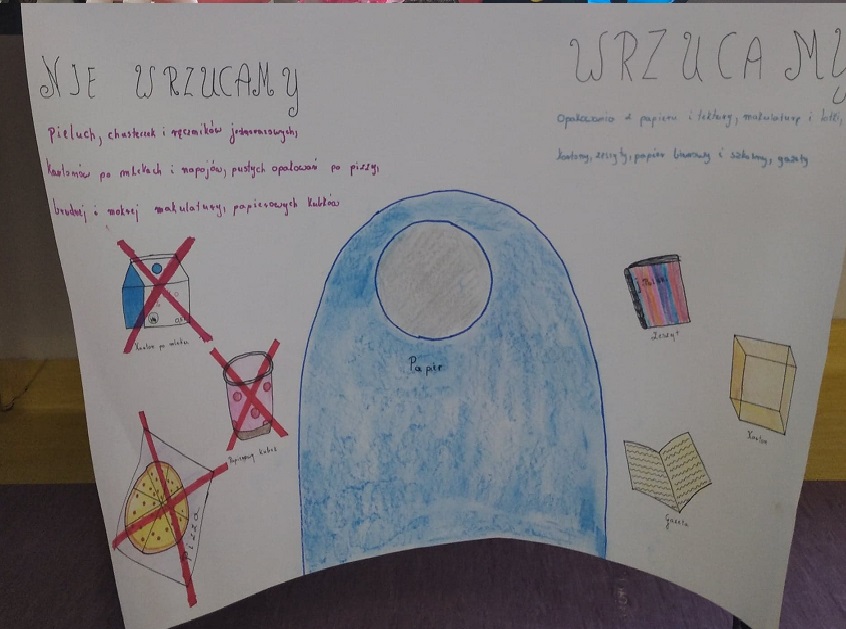 NIE WRZUCAMY
Pieluch, chusteczek i ręczników jednorazowych,
kartonów po mlekach i napojów, pustych opakowań po pizzy,
brudnej i mokrej makulatury, papierowych kubków
Karton po mleku
Papierowy kubek
pizza
Papier
WRZUCAMY
Opakowania z papieru i tektury, makulaturę i
kartony, zeszyty, papier biurowy i szkolny, gazety
Zeszyt
Karton
Gazeta